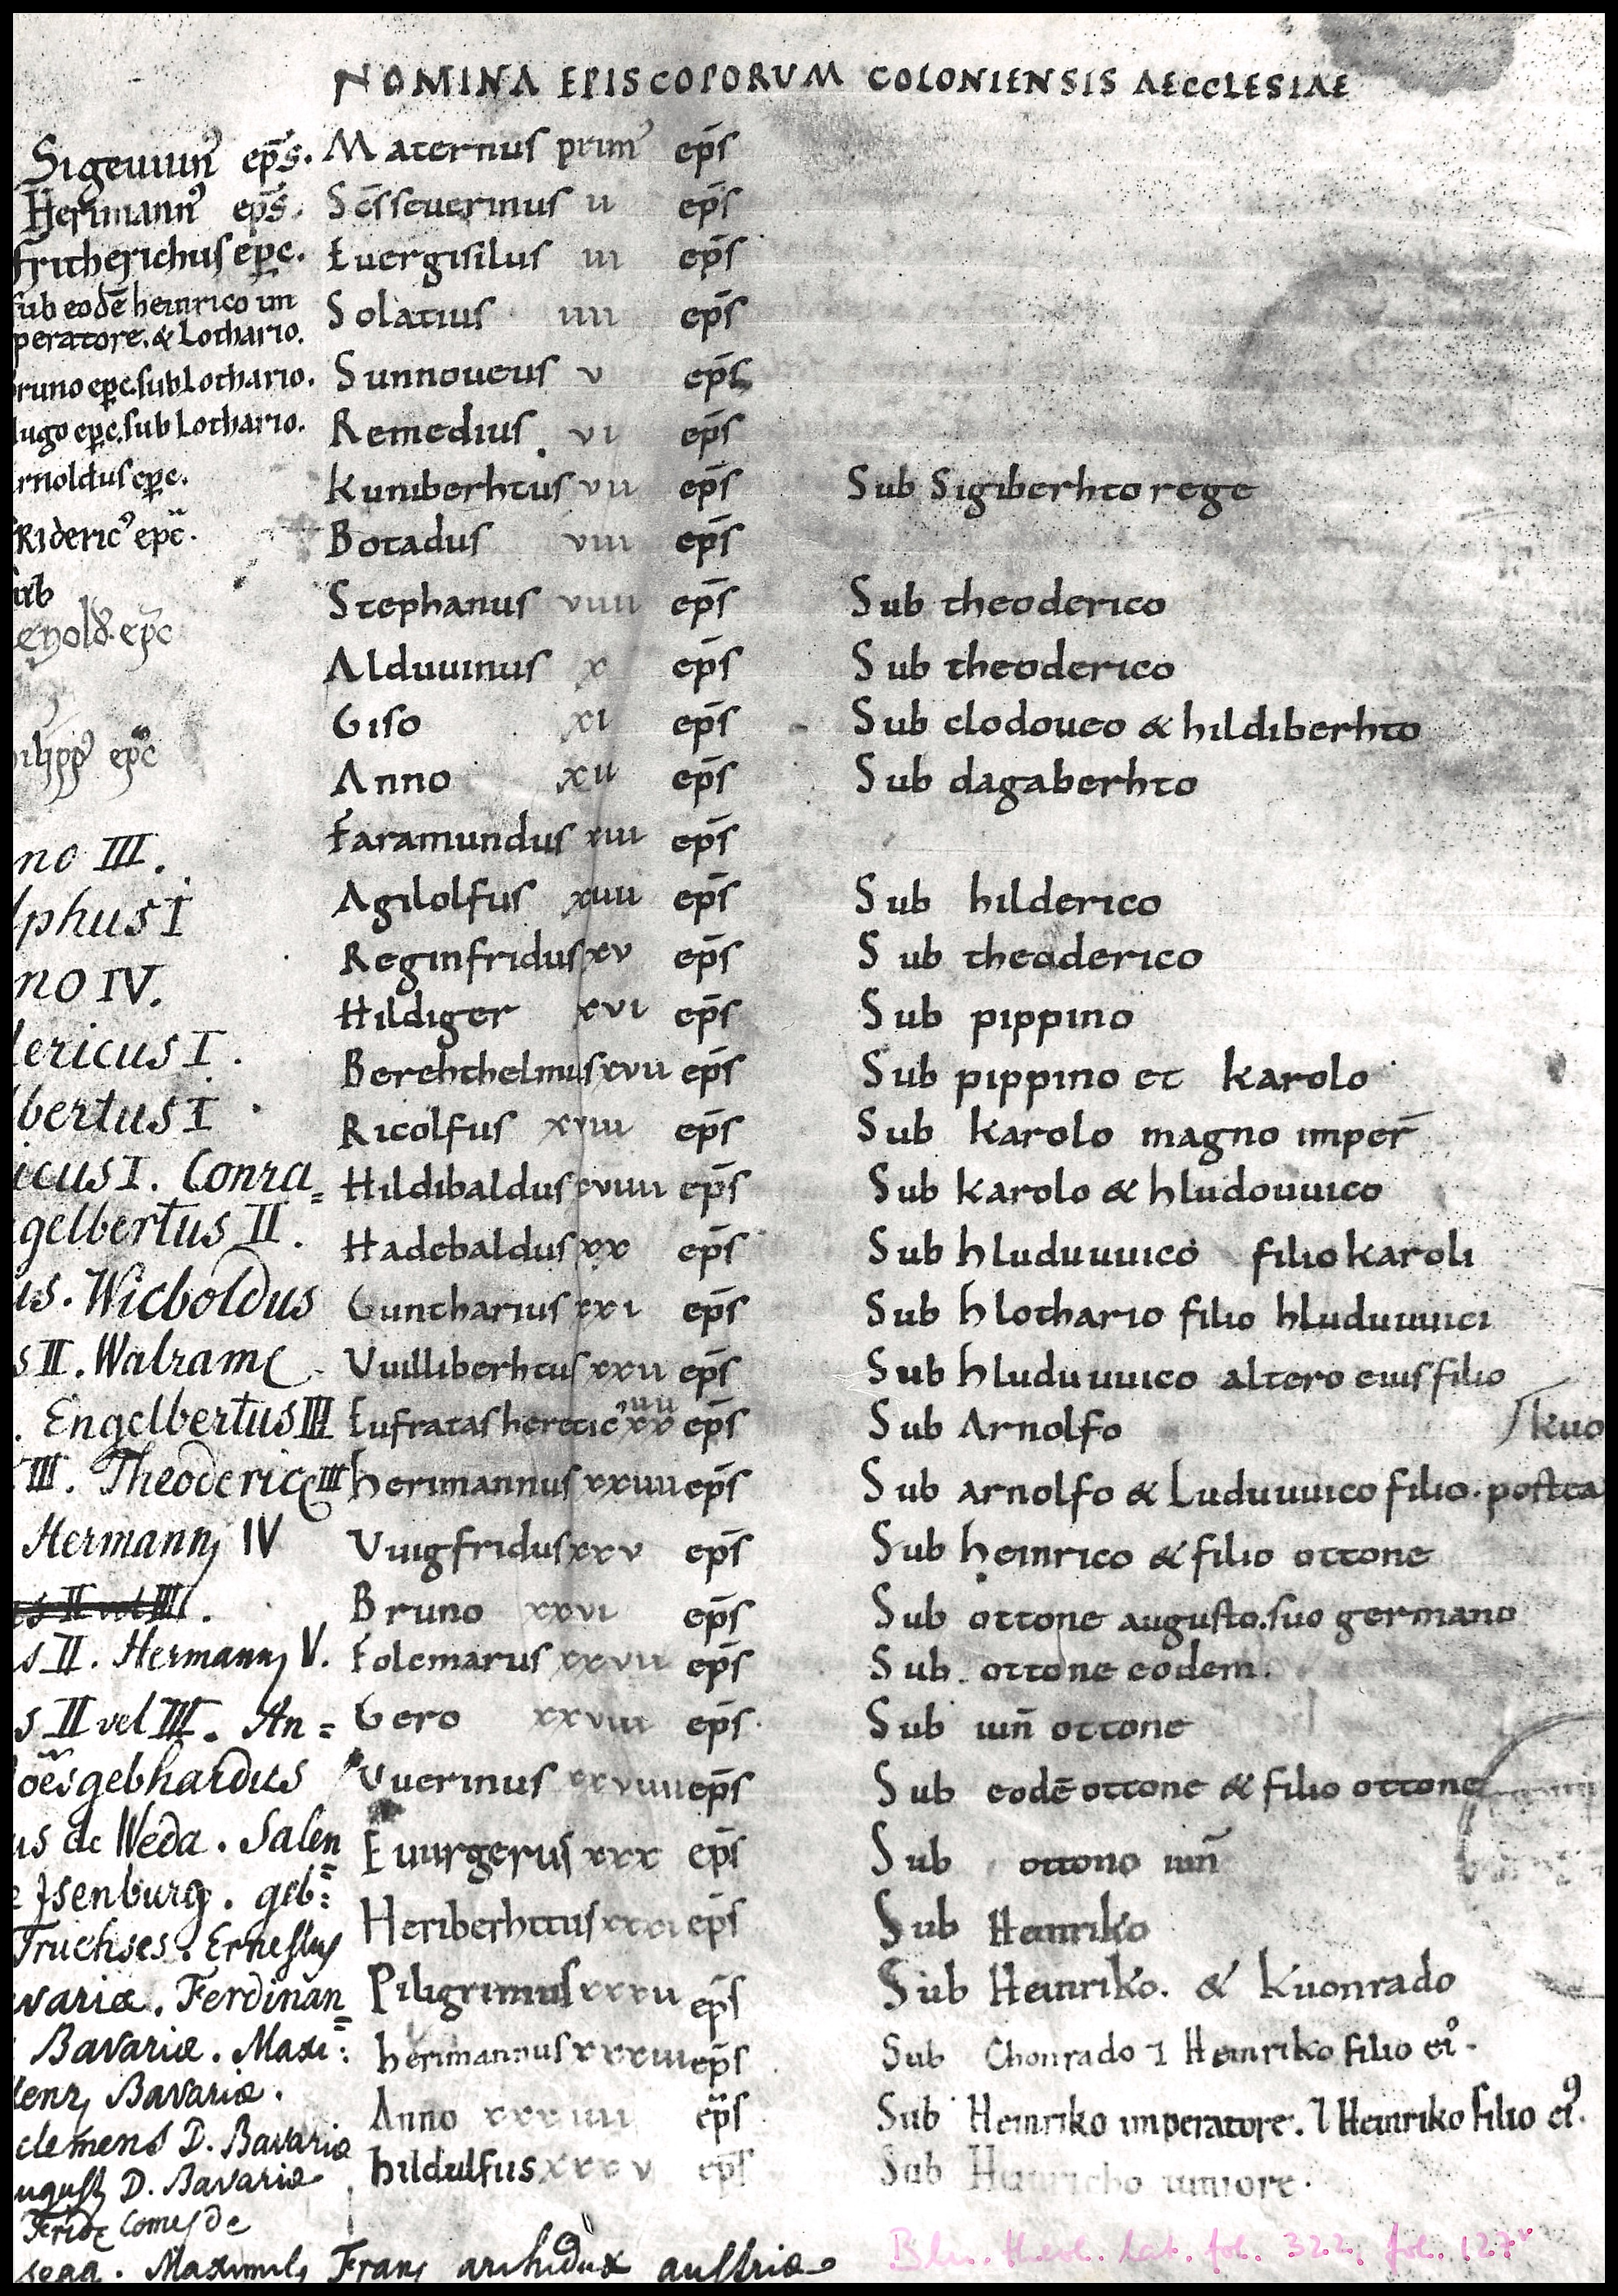 NOMINA EPISCOPORUM COLONIENSIS AECCLESIAE
Sigeuuinꝰ ep̄s.
Herimannꝰ ep̄s.
fritherichus epc.
sub eodē heinrico im
peratore. & Lothario.
runo epc. sub Lothario.
ugo epc. sub Lothario.
rnoldus epc.
Rideric̾ epc.
eynold. epc
ilippꝰ epc
no III.
lphus I
no IV.
dericus I.
lbertus I
icus I. Conra=
gelbertus II.
us. Wicboldus
s II. Walrame
. Engelbertus III
III. Theoderic III
Hermann IV
s II vel III.
s II. Hermann V.
s II vel III. An=
oēs gebhardus
us de Weda. Salen=
e Jsenburg. geb=
Truchses. Ernestus
variæ. Ferdinan=
Bavariæ. Maxi=
Henr Bavariæ.
clemens D. Bavariæ
August D. Bavariæ
Frid Comes de
segg. Maximil Franz archidux austriæ
Maternus primꝰ ep̄s
Sc̄s seuerinus ii ep̄s
Euergisilus iii ep̄s
Solatius iiii ep̄s
Sunnoueus v ep̄s
Remedius vi ep̄s
Kuniberhtus vii ep̄s Sub Sigiberhto rege
Botadus viii ep̄s
Stephanus viiii ep̄s Sub theoderico
Alduuinus x ep̄s Sub theoderico
Giso xi ep̄s Sub clodoueo & hildiberhto
Anno xii ep̄s Sub dagaberhto
Faramundus xiii ep̄s
Agilolfus xiiii ep̄s Sub hilderico
Reginfridus xv ep̄s Sub theoderico
Hildiger xvi ep̄s Sub pippino
Berehthelmus xvii ep̄s Sub pippino et karolo
Ricolfus xviii ep̄s Sub karolo magno imper̄
Hildibaldus xviiii ep̄s Sub karolo & hludouuico
Hadebaldus xx ep̄s Sub hluduuuico filio karoli
Guntharius xxi ep̄s Sub hlothario filio hluduuuici
Vuilliberhtus xxii ep̄s Sub hluduuuico altero eius filio
Eufratas heretic̾ ep̄s Sub Arnolfo kuo
herimannus xxiiii ep̄s Sub arnolfo & Luduuuico filio. postea
Vuigfridus xxv ep̄s Sub heinrico & filio ottone
Bruno xxvi ep̄s Sub ottone augusto. suo germano
Folemarus xxvii ep̄s Sub ottone eodem.
Gero xxviii ep̄s. Sub iun̄ ottone
Vuerinus xxviiii ep̄s Sub eodē ottone & filio ottone
Euurgerus xxx ep̄s Sub ottono iun̄
Heriberhttus xxxi ep̄s Sub Heinriko
Piligrimus xxxii ep̄s Sub Heinriko. & kuonrado
herimannus xxxiii ep̄s Sub Chonrado ⁊ Heinriko filio eiꝰ.
Anno xxxiiii ep̄s Sub Heinriko imperatore. ⁊ Heinriko filio eiꝰ.
hildulfus xxxv ep̄s Sub Heinricho iuniore.
Bln. theol. lat. fol. 322, fol. 127v